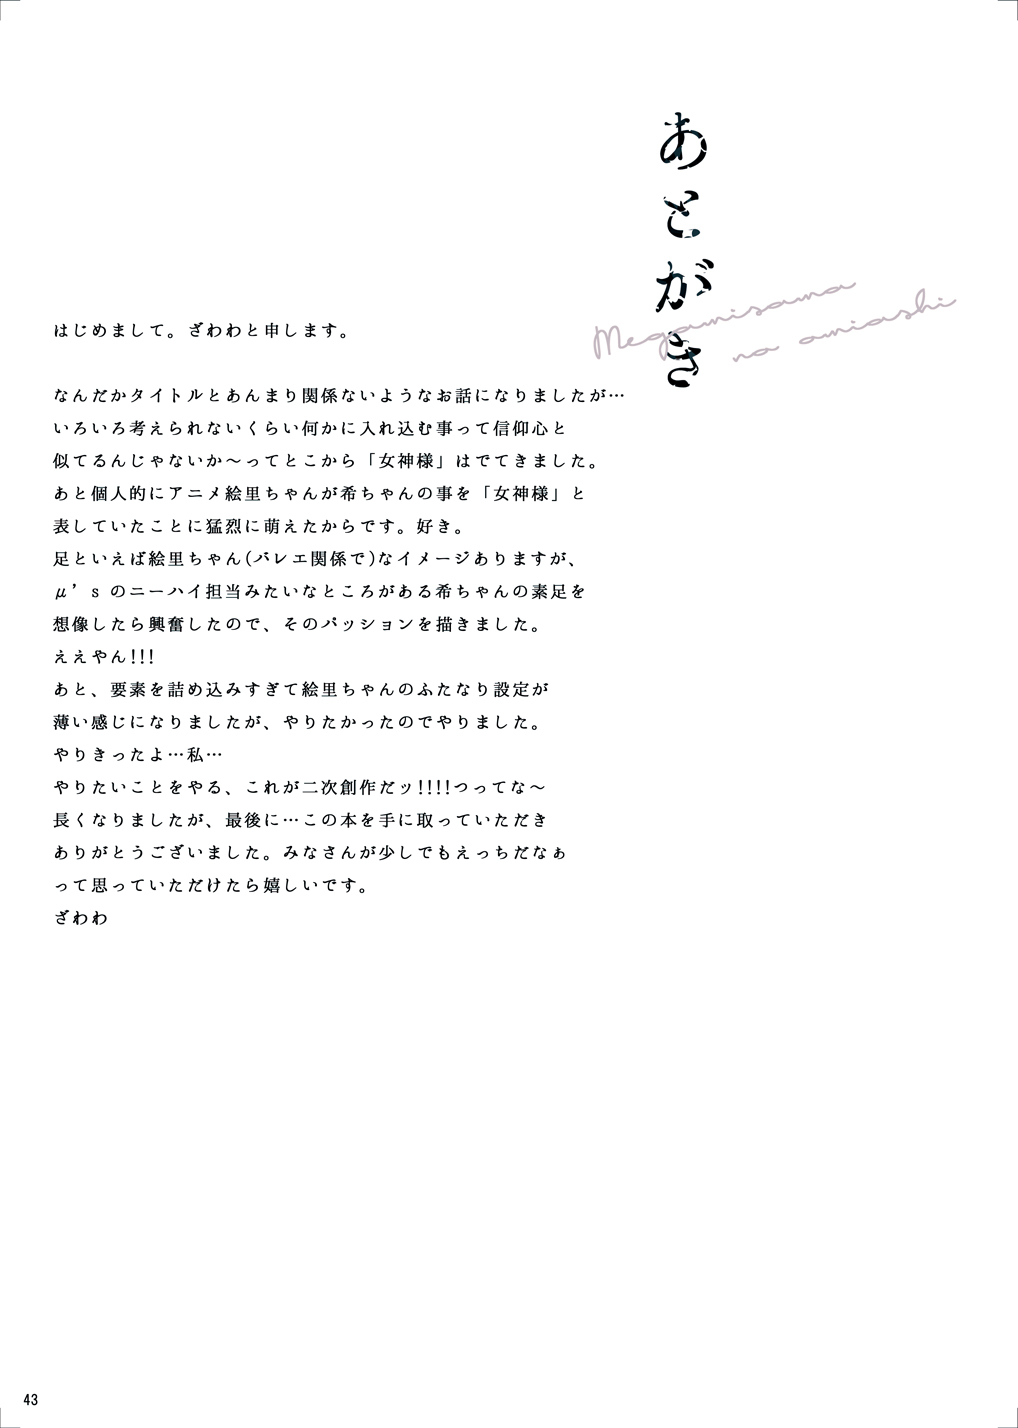 あとがき
Megamisama
no amiashi
はじめまして。ざわわと申します。
なんだかタイトルとあんまり関係ないようなお話になりましたが…
いろいろ考えられないくらい何かに入れ込む事って信仰心と
似てるんじゃないか～ってとこから「女神様」はでてきました。
あと個人的にアニメ絵里ちゃんが希ちゃんの事を「女神様」と
表していたことに猛烈に萌えたからです。好き。
足といえば絵里ちゃん(バレエ関係で)なイメージありますが、
μ’s のニーハイ担当みたいなところがある希ちゃんの素足を
想像したら興奮したので、そのパッションを描きました。
ええやん!!!
あと、要素を詰め込みすぎて絵里ちゃんのふたなり設定が
薄い感じになりましたが、やりたかったのでやりました。
やりきったよ…私…
やりたいことをやる、これが二次創作だッ!!!!つってな～
長くなりましたが、最後に…この本を手に取っていただき
ありがとうございました。みなさんが少しでもえっちだなぁ
って思っていただけたら嬉しいです。
ざわわ
43